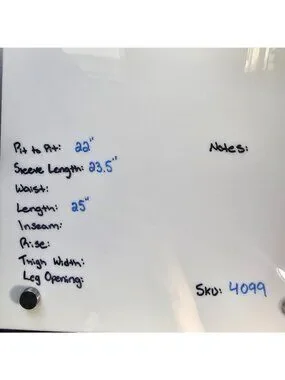 Pit to Pit: 22"
Notes:
Sleeve Length: 23.5"
Waist:
Length: 25"
Inseam:
Rise:
Thigh Width:
Leg Opening:
SKU: 4099